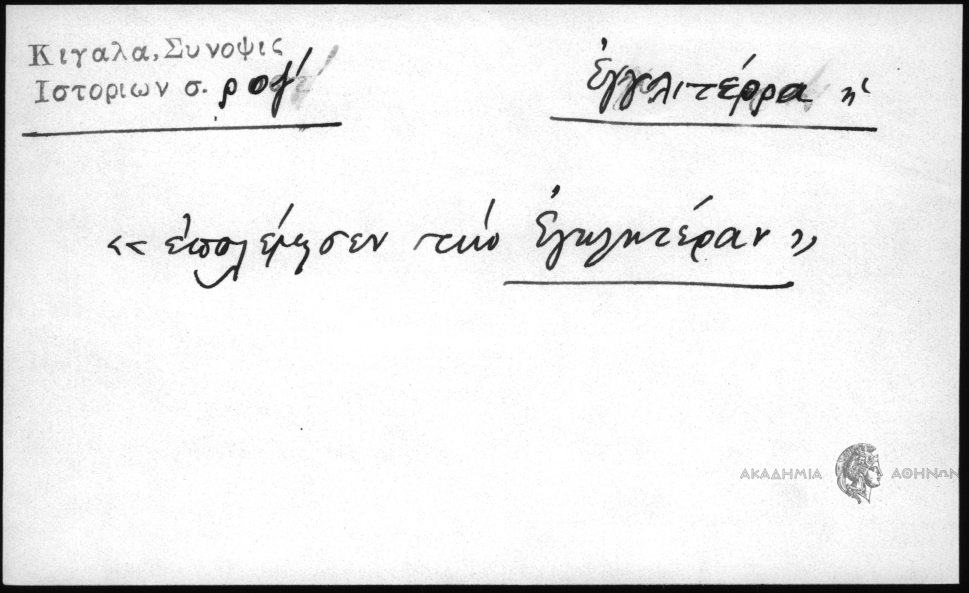 Κιγαλα, Συνοψις
Ιστοριων σ. ρογ́
Ἐγγλιτέρρα ἡ
«ἐπολέμησεν τὴν Ἐγγλητέραν»
ΑΚΑΔΗΜΙΑ ΑΘΗΝΩΝ